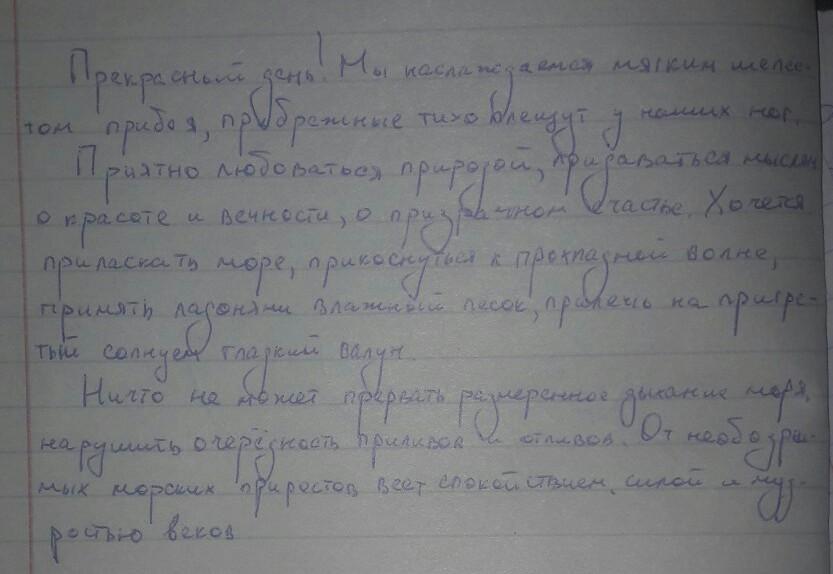 Прекрасный день! Мы наслаждаемся мягким шелес-
том прибоя, прибрежные тихо блещут у наших ног.
Приятно любоваться природой, придаваться мыслям
о красоте и вечности, о призрачном счастье. Хочется
приласкать море, прикоснуться к прохладней волне,
примять ладонями влажный песок, прилечь на пригре-
тый солнцем гладкий валун.
Ничто не может прервать размеренное дыхание моря,
нарушить очерёдность приливов и отливов. От необозри-
мых морских прирестов веет спокойствием, силой и муд-
ростью веков